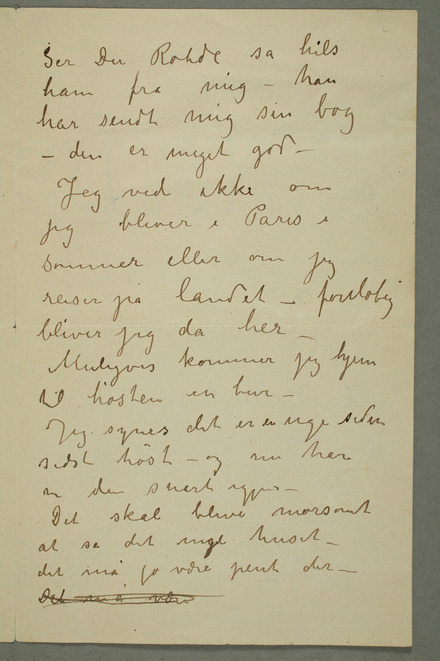 Ser Du Rohde sa hils
ham fra mig – han
har sendt mig sin bog
– den er meget god –
Jeg ved ikke om
jeg bliver i Paris i
sommer eller om jeg
reiser på landet – foreløbig
bliver jeg da her –
Muligvis kommer jeg hjem
til hösten en tur –
Jeg synes det er en uge siden
sidst höst – og nu har
vi den snart igjen –
Det skal blive morsomt
at se det nye huset –
det må jo være pent der –
Det må være